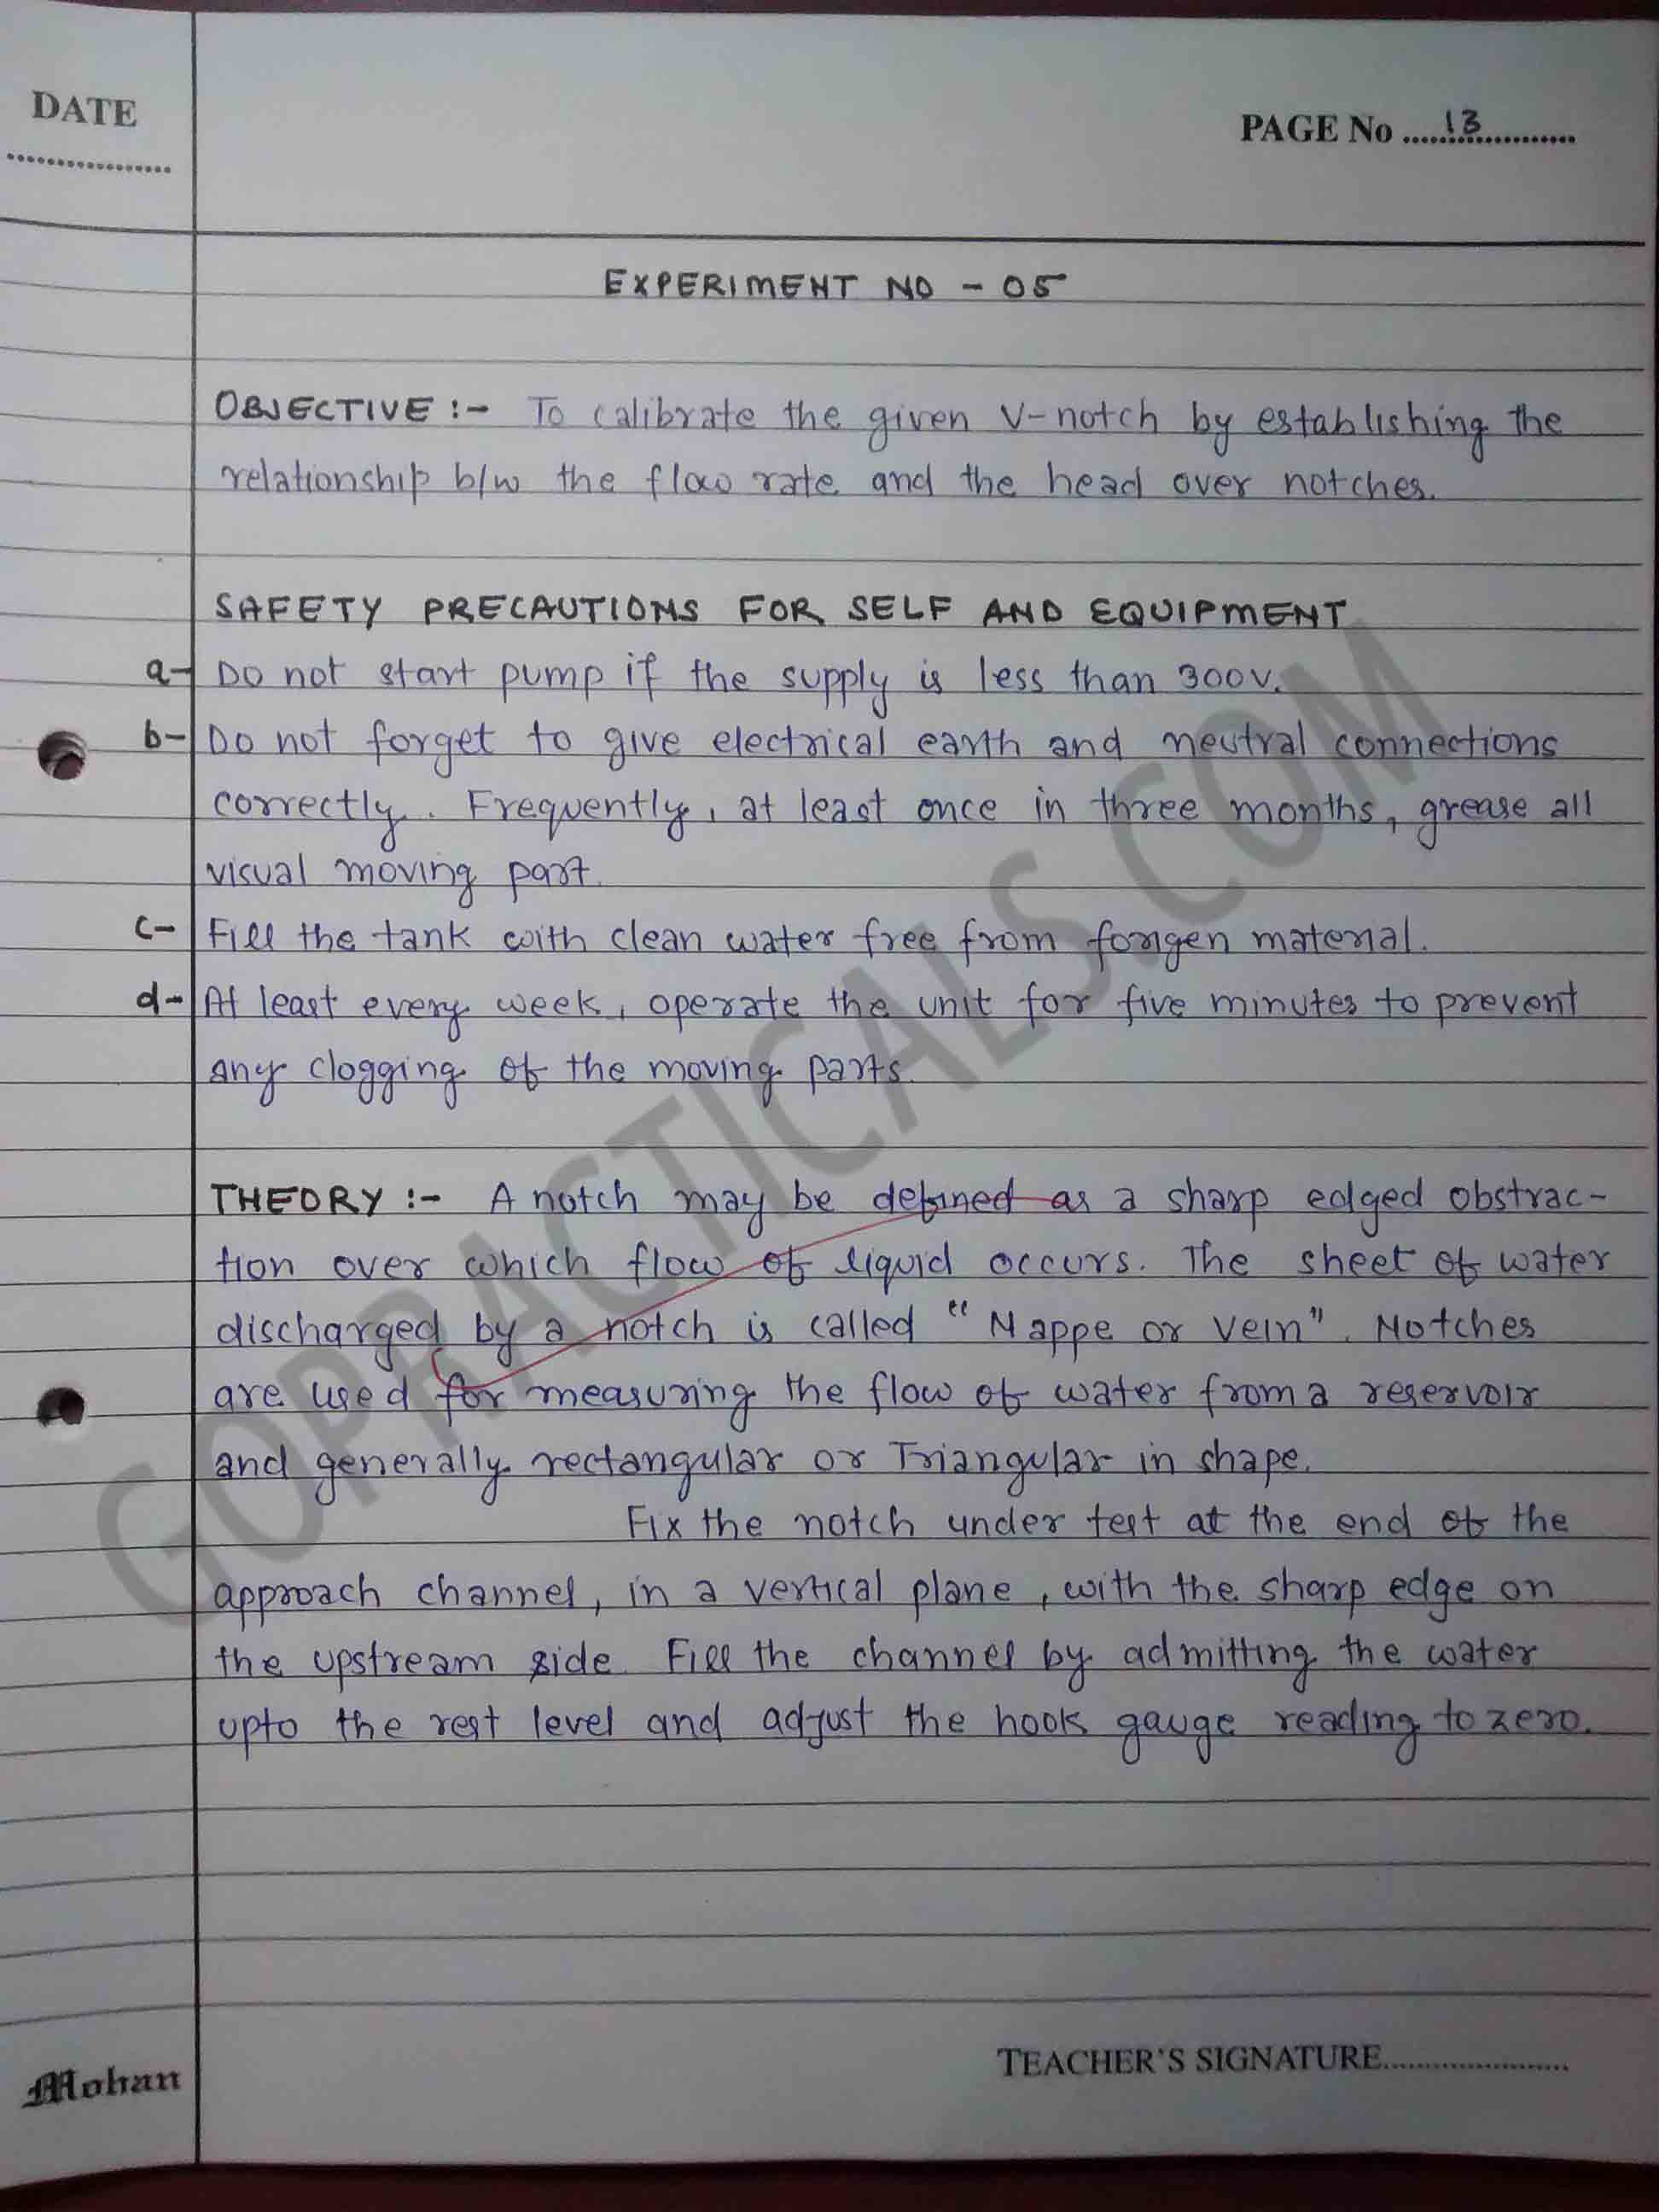 DATE
PAGE No .....13............
.................
EXPERIMENT NO - 05
OBJECTIVE :- To calibrate the given V-notch by establishing the
relationship b/w the flow rate and the head over notches.
SAFETY PRECAUTIONS FOR SELF AND EQUIPMENT
a- Do not start pump if the supply is less than 300V.
b- Do not forget to give electrical earth and neutral connections
correctly. Frequently, at least once in three months, grease all
visual moving part.
c- Fill the tank with clean water free from forigen material.
d- At least every week, operate the unit for five minutes to prevent
any clogging of the moving parts.
THEORY :- A notch may be defined as a sharp edged obstrac-
tion over which flow of liquid occurs. The sheet of water
discharged by a notch is called "Nappe or Vein". Notches
are used for measuring the flow of water from a reservoir
and generally rectangular or Triangular in shape.
Fix the notch under test at the end of the
approach channel, in a vertical plane, with the sharp edge on
the upstream side. Fill the channel by admitting the water
upto the rest level and adjust the hook gauge reading to zero.
GOPRACTICALS.COM
TEACHER'S SIGNATURE.......................
Mohan